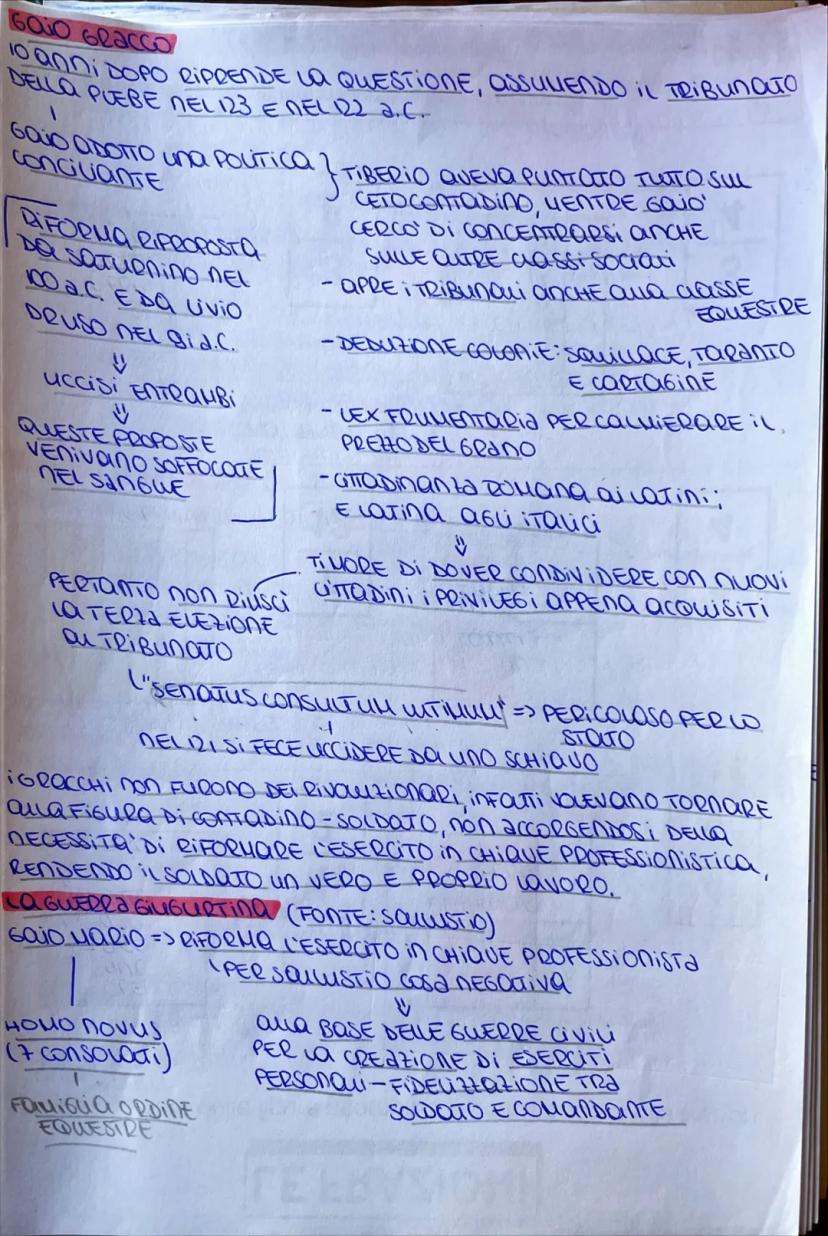 GAIO GRACCO
10 ANNI DOPO RIPRENDE LA QUESTIONE, ASSUMENDO IL TRIBUNATO
DELLA PLEBE NEL 123 E NEL 122 a.C.
GAIO ADOTTO UNA POLITICA
CONCILIANTE
TIBERIO AVEVA PUNTATO TUTTO SUL
CETO CONTADINO, MENTRE GAIO'
CERCO' DI CONCENTRARSI ANCHE
SULLE ALTRE CLASSI SOCIALI
- APRE I TRIBUNALI ANCHE ALLA CLASSE
EQUESTRE
- DEDUZIONE COLONIE: SQUILLACE, TARANTO
E CARTAGINE
- LEX FRUMENTARIA PER CALMIERARE IL
PREZZO DEL GRANO
- CITTADINANZA ROMANA AI LATINI;
E LATINA AGLI ITALICI
⇓
TIMORE DI DOVER CONDIVIDERE CON NUOVI
CITTADINI I PRIVILEGI APPENA ACQUISITI
RIFORMA RIPROPOSTA
DA SATURNINO NEL
100 a.C. E DA LIVIO
DRUSO NEL 91 a.C.
⇓
UCCISI ENTRAMBI
⇓
QUESTE PROPOSTE
VENIVANO SOFFOCATE
NEL SANGUE
PERTANTO NON RIUSCÌ
LA TERZA ELEZIONE
AL TRIBUNATO
"SENATUS CONSULTUM ULTIMUM" => PERICOLOSO PER LO
STATO
NEL 121 SI FECE UCCIDERE DA UNO SCHIAVO
I GRACCHI NON FURONO DEI RIVOLUZIONARI, INFATTI VOLEVANO TORNARE
ALLA FIGURA DI CONTADINO-SOLDATO, NON ACCORGENDOSI DELLA
NECESSITA' DI RIFORMARE L'ESERCITO IN CHIAVE PROFESSIONISTICA,
RENDENDO IL SOLDATO UN VERO E PROPRIO LAVORO.
LA GUERRA GIUGURTINA (FONTE: SALLUSTIO)
GAIO MARIO => RIFORMA L'ESERCITO IN CHIAVE PROFESSIONISTA
PER SALLUSTIO COSA NEGATIVA
⇓
ALLA BASE DELLE GUERRE CIVILI
PER LA CREAZIONE DI ESERCITI
PERSONALI - FIDELIZZAZIONE TRA
SOLDATO E COMANDANTE
HOMO NOVUS
(7 CONSOLATI)
FAMIGLIA ORDINE
EQUESTRE
LE FRAZIONI